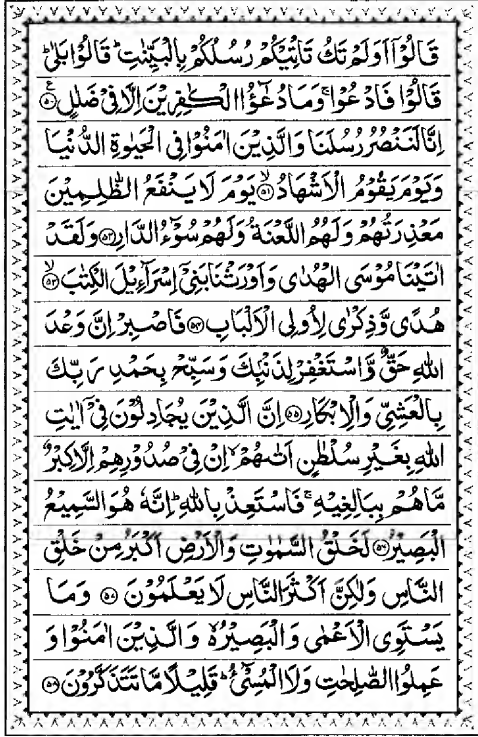 قَالُوْۤا اَوَلَمْ تَكُ تَاْتِيْكُمْ رُسُلُكُمْ بِالْبَيِّنٰتِ ؕ قَالُوْا بَلٰی ؕ
قَالُوْا فَادْعُوْا ۚ وَمَا دُعٰٓؤُا الْكٰفِرِيْنَ اِلَّا فِيْ ضَلٰلٍ ۧ﴿۵۰﴾
اِنَّا لَنَنْصُرُ رُسُلَنَا وَالَّذِيْنَ اٰمَنُوْا فِي الْحَيٰوةِ الدُّنْيَا
وَيَوْمَ يَقُوْمُ الْاَشْهَادُ ۙ﴿۵۱﴾ يَوْمَ لَا يَنْفَعُ الظّٰلِمِيْنَ
مَعْذِرَتُهُمْ وَلَهُمُ اللَّعْنَةُ وَلَهُمْ سُوْٓءُ الدَّارِ ﴿۵۲﴾ وَلَقَدْ
اٰتَيْنَا مُوْسَی الْهُدٰی وَاَوْرَثْنَا بَنِيْۤ اِسْرَآءِيْلَ الْكِتٰبَ ۙ﴿۵۳﴾
هُدًی وَّذِكْرٰی لِاُولِی الْاَلْبَابِ ﴿۵۴﴾ فَاصْبِرْ اِنَّ وَعْدَ
اللّٰهِ حَقٌّ وَّاسْتَغْفِرْ لِذَنْۢبِكَ وَسَبِّحْ بِحَمْدِ رَبِّكَ
بِالْعَشِيِّ وَالْاِبْكَارِ ﴿۵۵﴾ اِنَّ الَّذِيْنَ يُجَادِلُوْنَ فِيْۤ اٰيٰتِ
اللّٰهِ بِغَيْرِ سُلْطٰنٍ اَتٰىهُمْ ۙ اِنْ فِيْ صُدُوْرِهِمْ اِلَّا كِبْرٌ
مَّا هُمْ بِبَالِغِيْهِ ۚ فَاسْتَعِذْ بِاللّٰهِ ؕ اِنَّهٗ هُوَ السَّمِيْعُ
الْبَصِيْرُ ﴿۵۶﴾ لَخَلْقُ السَّمٰوٰتِ وَالْاَرْضِ اَكْبَرُ مِنْ خَلْقِ
النَّاسِ وَلٰكِنَّ اَكْثَرَ النَّاسِ لَا يَعْلَمُوْنَ ﴿۵۷﴾ وَمَا
يَسْتَوِی الْاَعْمٰی وَالْبَصِيْرُ ۙ۬ وَالَّذِيْنَ اٰمَنُوْا وَ
عَمِلُوا الصّٰلِحٰتِ وَلَا الْمُسِيْٓءُ ؕ قَلِيْلًا مَّا تَتَذَكَّرُوْنَ ﴿۵۸﴾